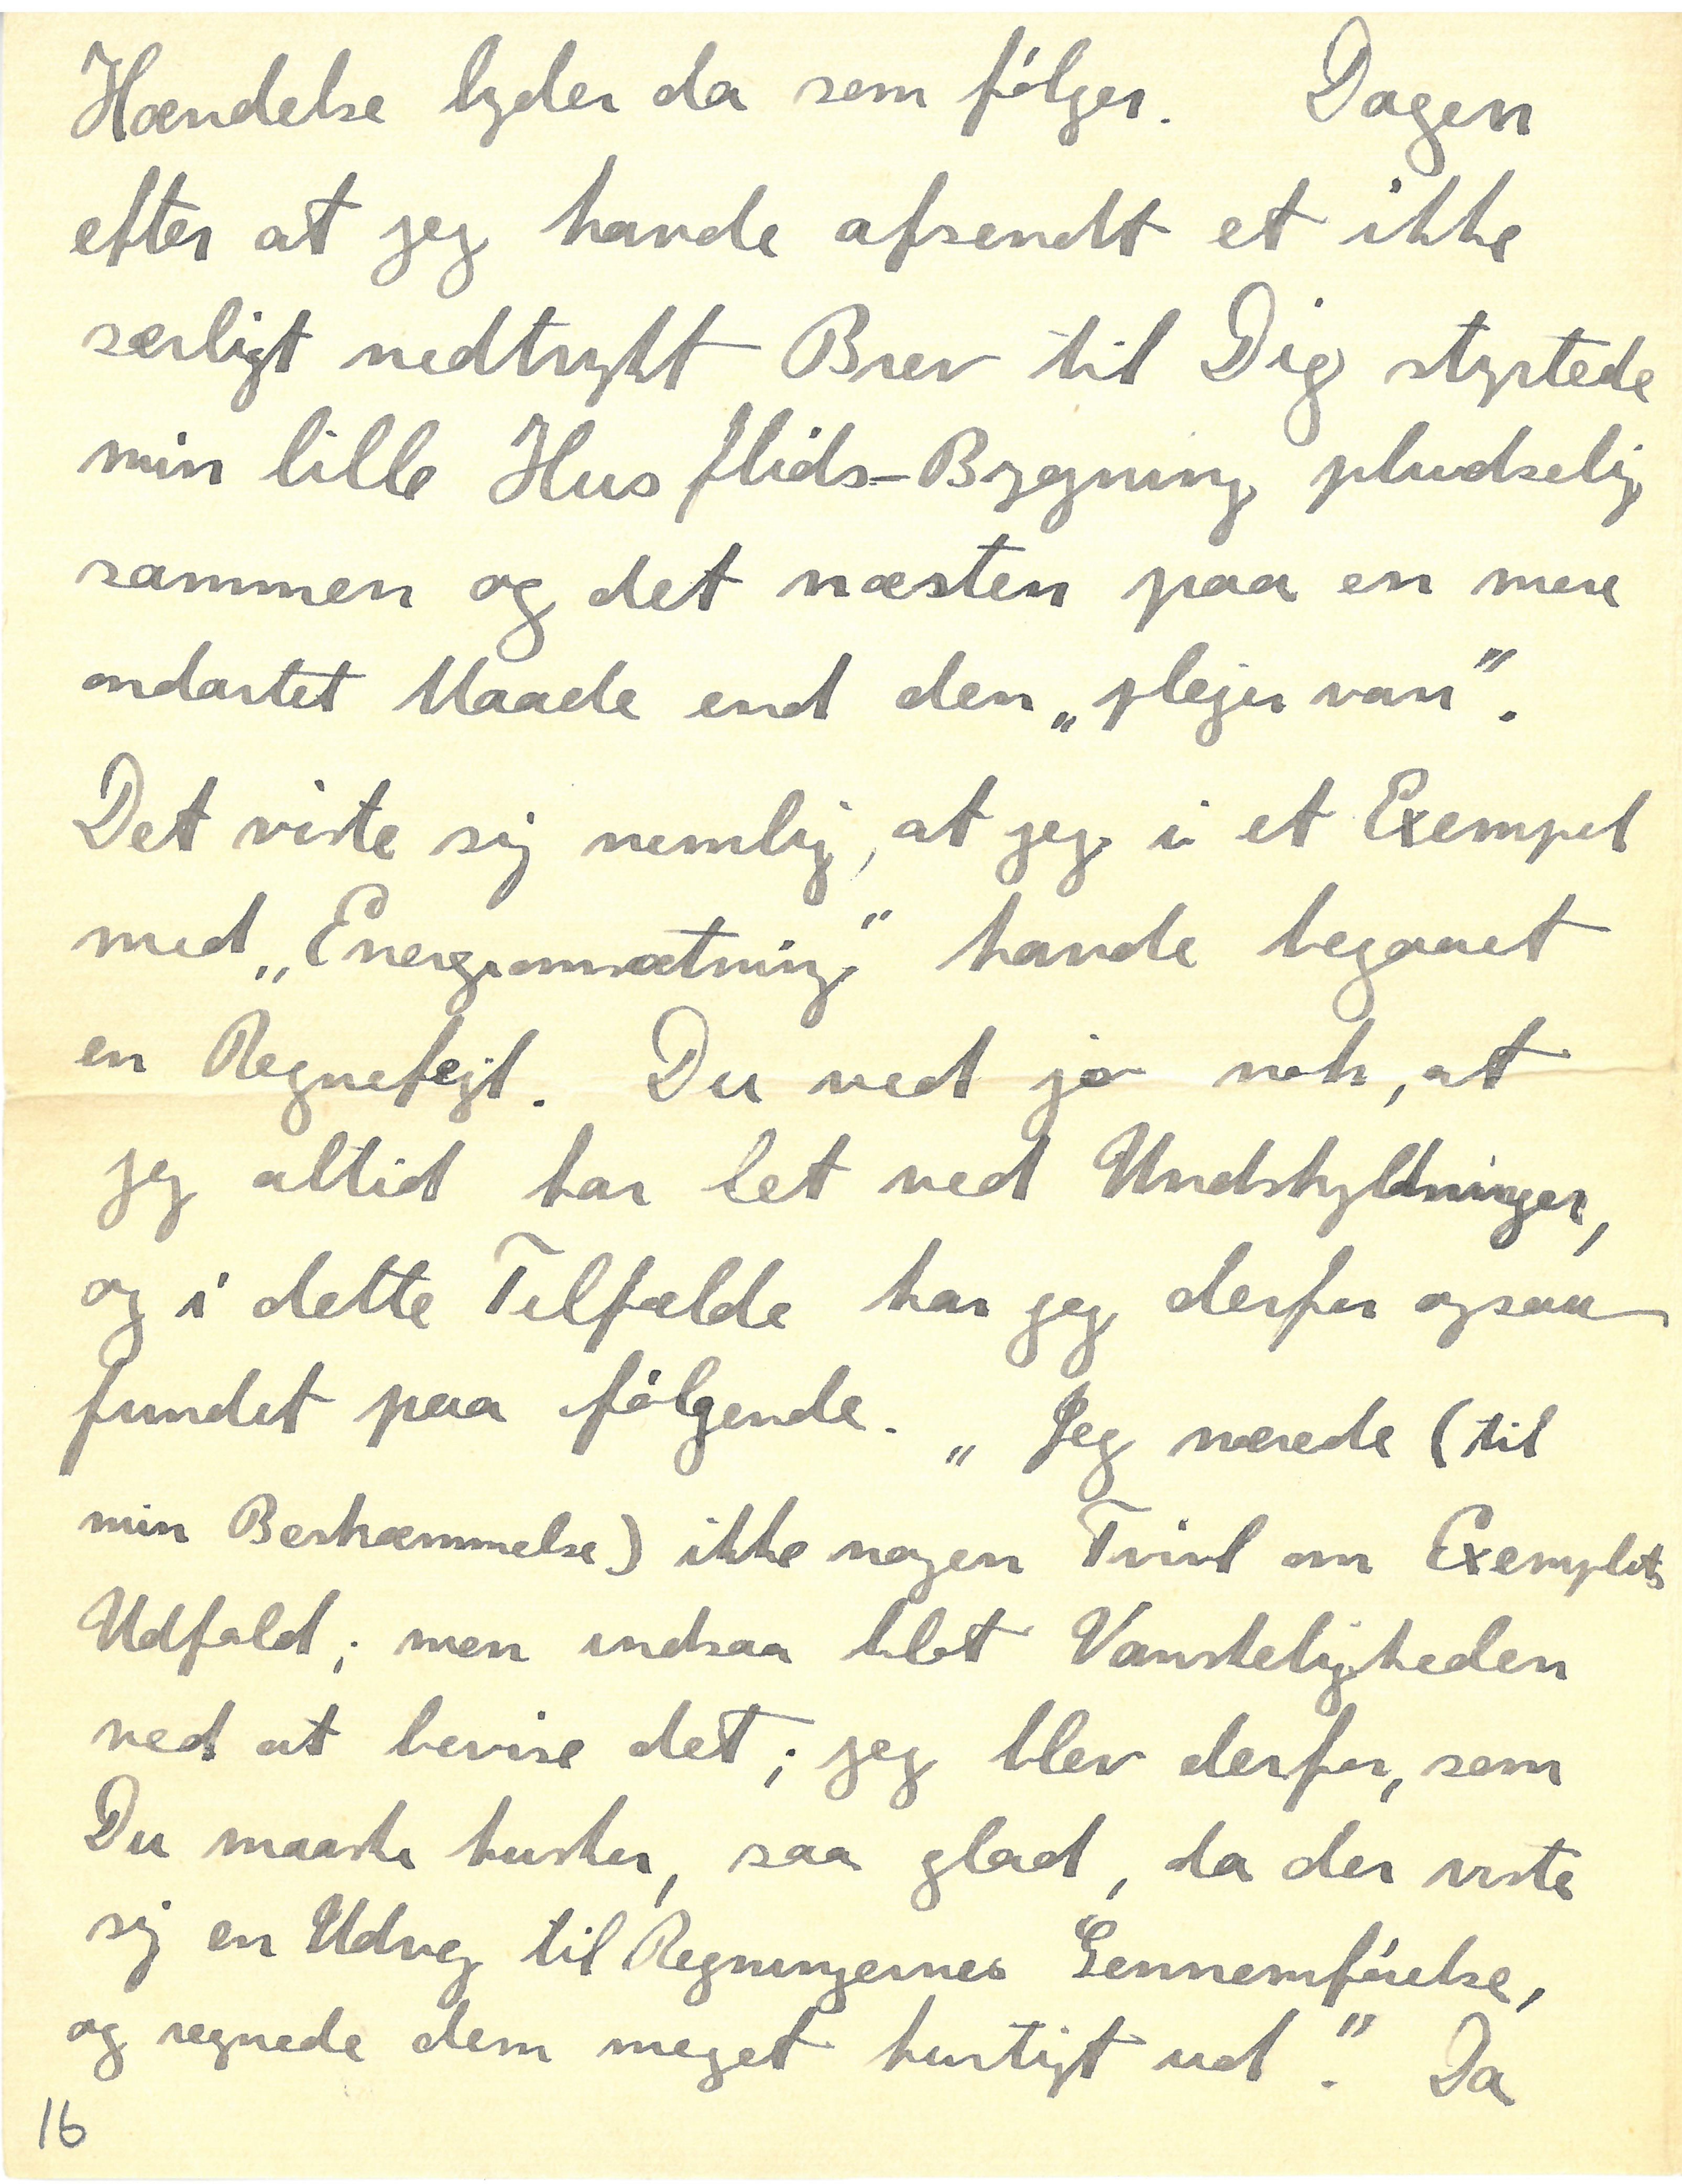 Hændelse lyder da som følger. Dagen
efter at jeg havde afsendt et ikke
særligt nedtrykt Brev til Dig styrtede
min lille Husflids-Bygning pludselig
sammen og det næsten paa en mere
ondartet Maade end den „plejer van”.
Det viste sig nemlig, at jeg i et Exempel
med „Energiomsætning” havde begaaet
en Regnefejl. Du ved jo nok, at
jeg altid har let ved Undskyldninger,
og i dette Tilfælde har jeg derfor ogsaa
fundet paa følgende. „Jeg nærede (til
min Beskæmmelse) ikke nogen Tvivl om Exemplets
Udfald; men indsaa blot Vanskeligheden
ved at bevise det; jeg blev derfor, som
Du maaske husker, saa glad, da der viste
sig en Udvej til Regningernes Gennemførelse,
og regnede dem meget hurtigt ud.” Da
16